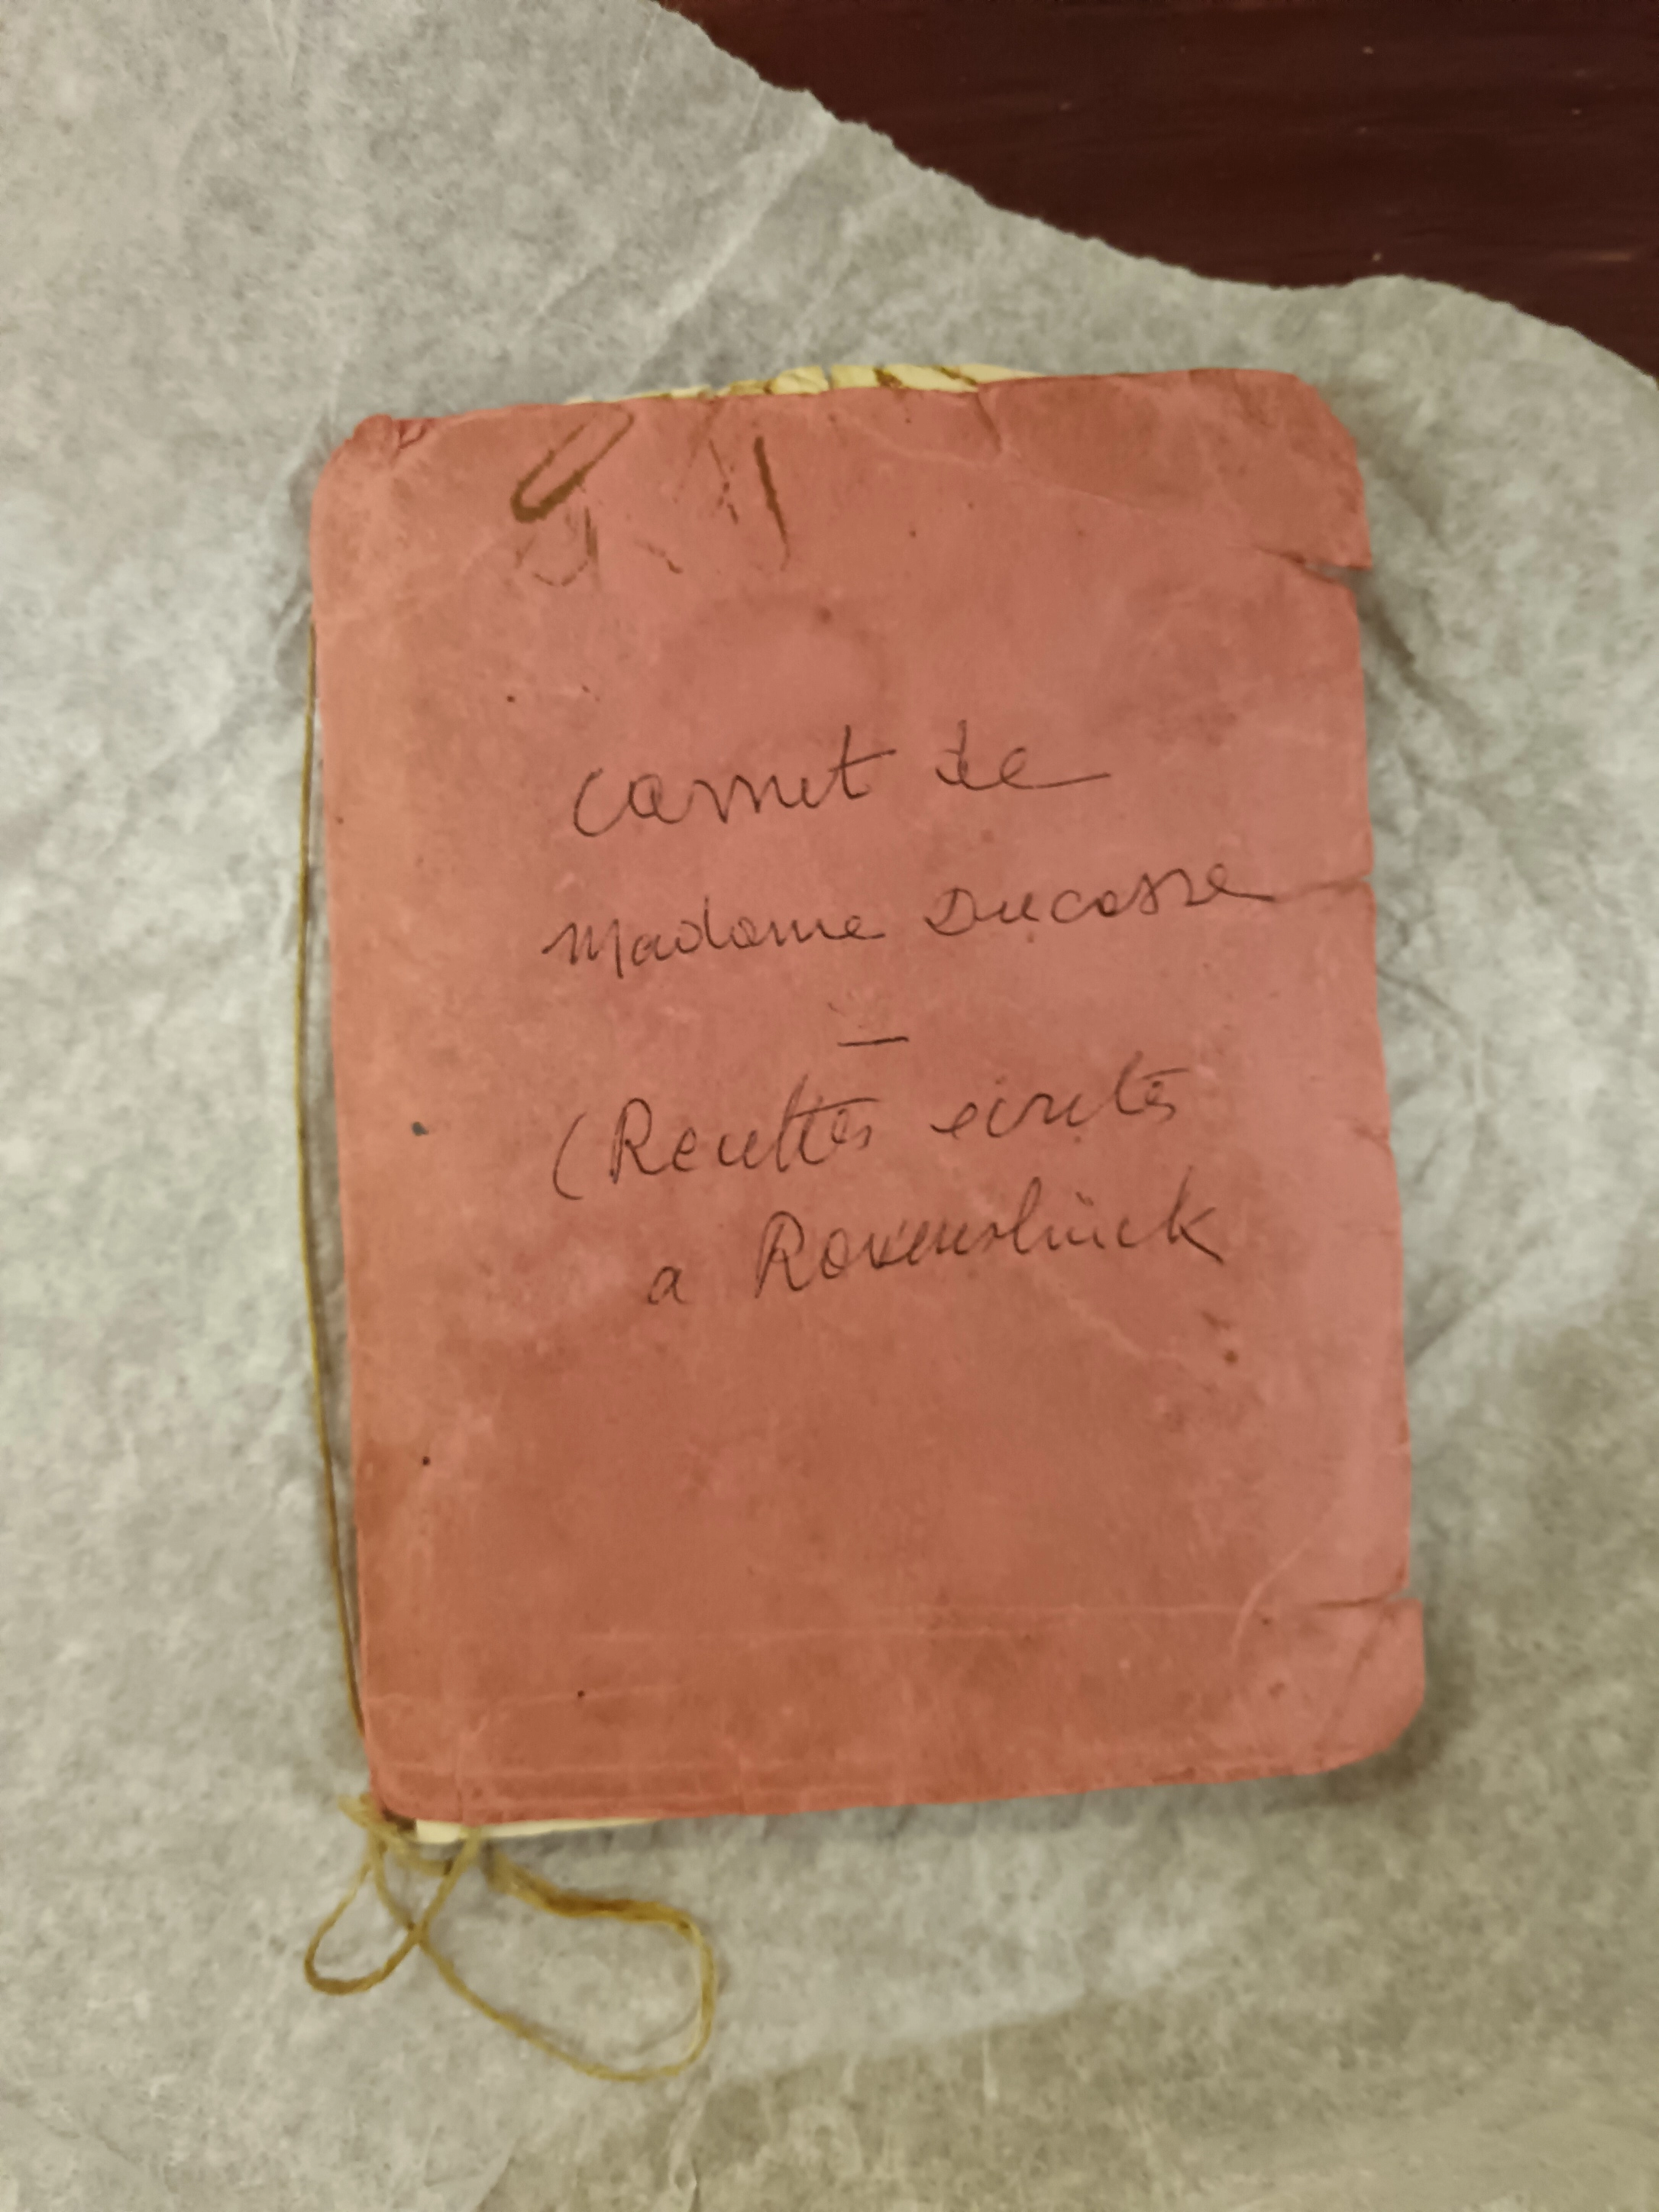 Carnet de
Madame Ducasse
—
(Recettes écrites
a Ravensbrück